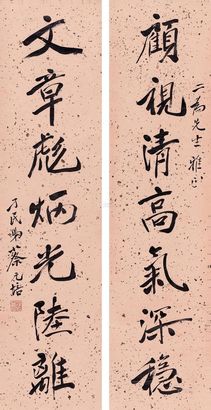 先生雅
顧視清高氣深穩
文章彪炳光陸離
孑民弟蔡元培